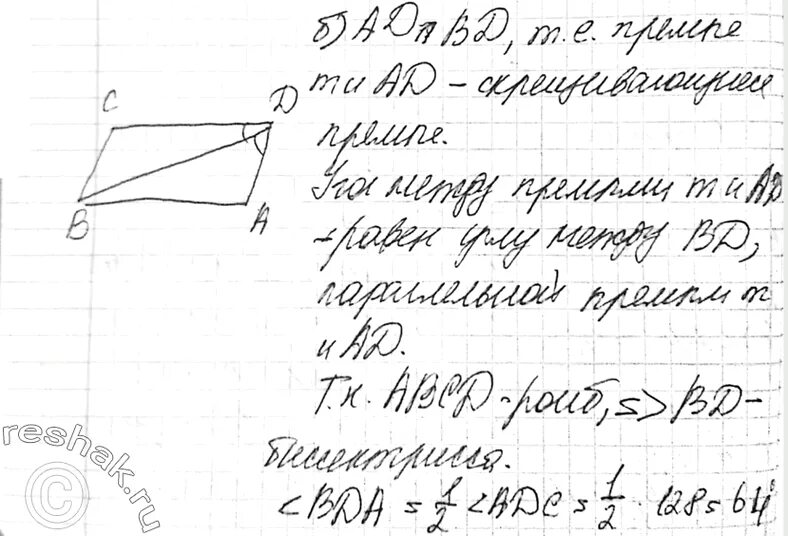 б) AD ∩ BD, т.е. прямые
m и AD – скрещивающиеся
прямые.
Угол между прямыми m и AD
– равен углу между BD,
параллельной прямой m
и AD.
Т.к. ABCD – ромб, => BD –
биссектрисса.
<BDA = 1/2 <ADC = 1/2 · 128 = 64°
C
D
B
A
reshak.ru
©